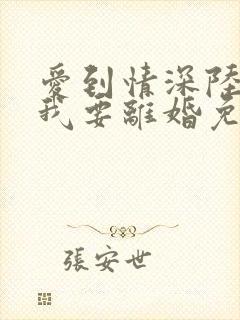 愛到情深陸
我要離婚免
張安世